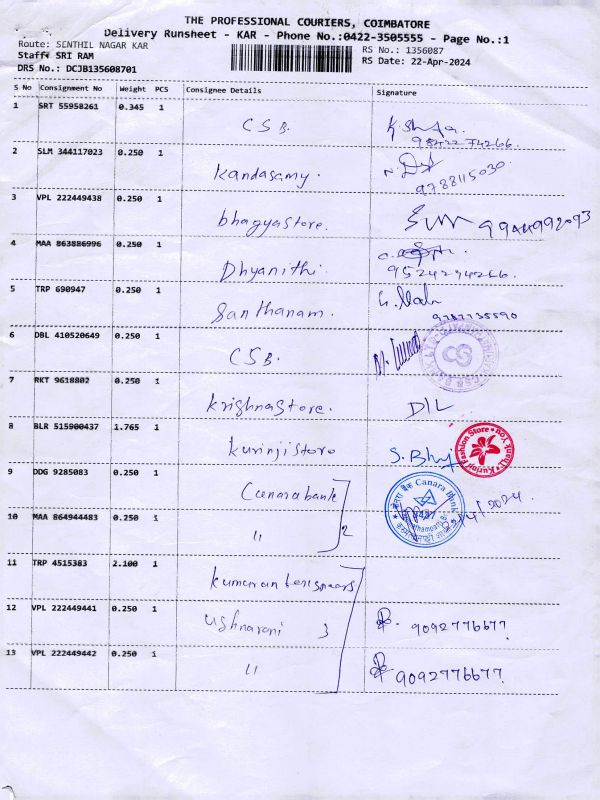 THE PROFESSIONAL COURIERS, COIMBATORE
Delivery Runsheet - KAR - Phone No.:0422-3505555 - Page No.:1
Route: SENTHIL NAGAR KAR
RS No.: 1356087
Staff: SRI RAM
RS Date: 22-Apr-2024
DRS No.: DCJB135608701
S No Consignment No Weight PCS Consignee Details Signature
1 SRT 55958261 0.345 1
CSB.
2 SLM 344117023 0.250 1
Kandasamy.
9788115030
3 VPL 222449438 0.250 1
bhagyastore.
4 MAA 863886996 0.250 1
Dhyanithi
9524294266
5 TRP 690947 0.250 1
Santhanam.
9787735590
6 DBL 410520649 0.250 1
CSB.
CS
7 RKT 9618802 0.250 1
Krishnastore.
DIL
8 BLR 515900437 1.765 1
kurinjistore
S. Bhuj
Fashion Store
Thank You
9 DDG 9285083 0.250 1
Canara bank
Canara Bank
10 MAA 864944483 0.250 1
" 2
11 TRP 4515383 2.100 1
12 VPL 222449441 0.250 1
ushnarani 3
9092776677
13 VPL 222449442 0.250 1
"
9092776677